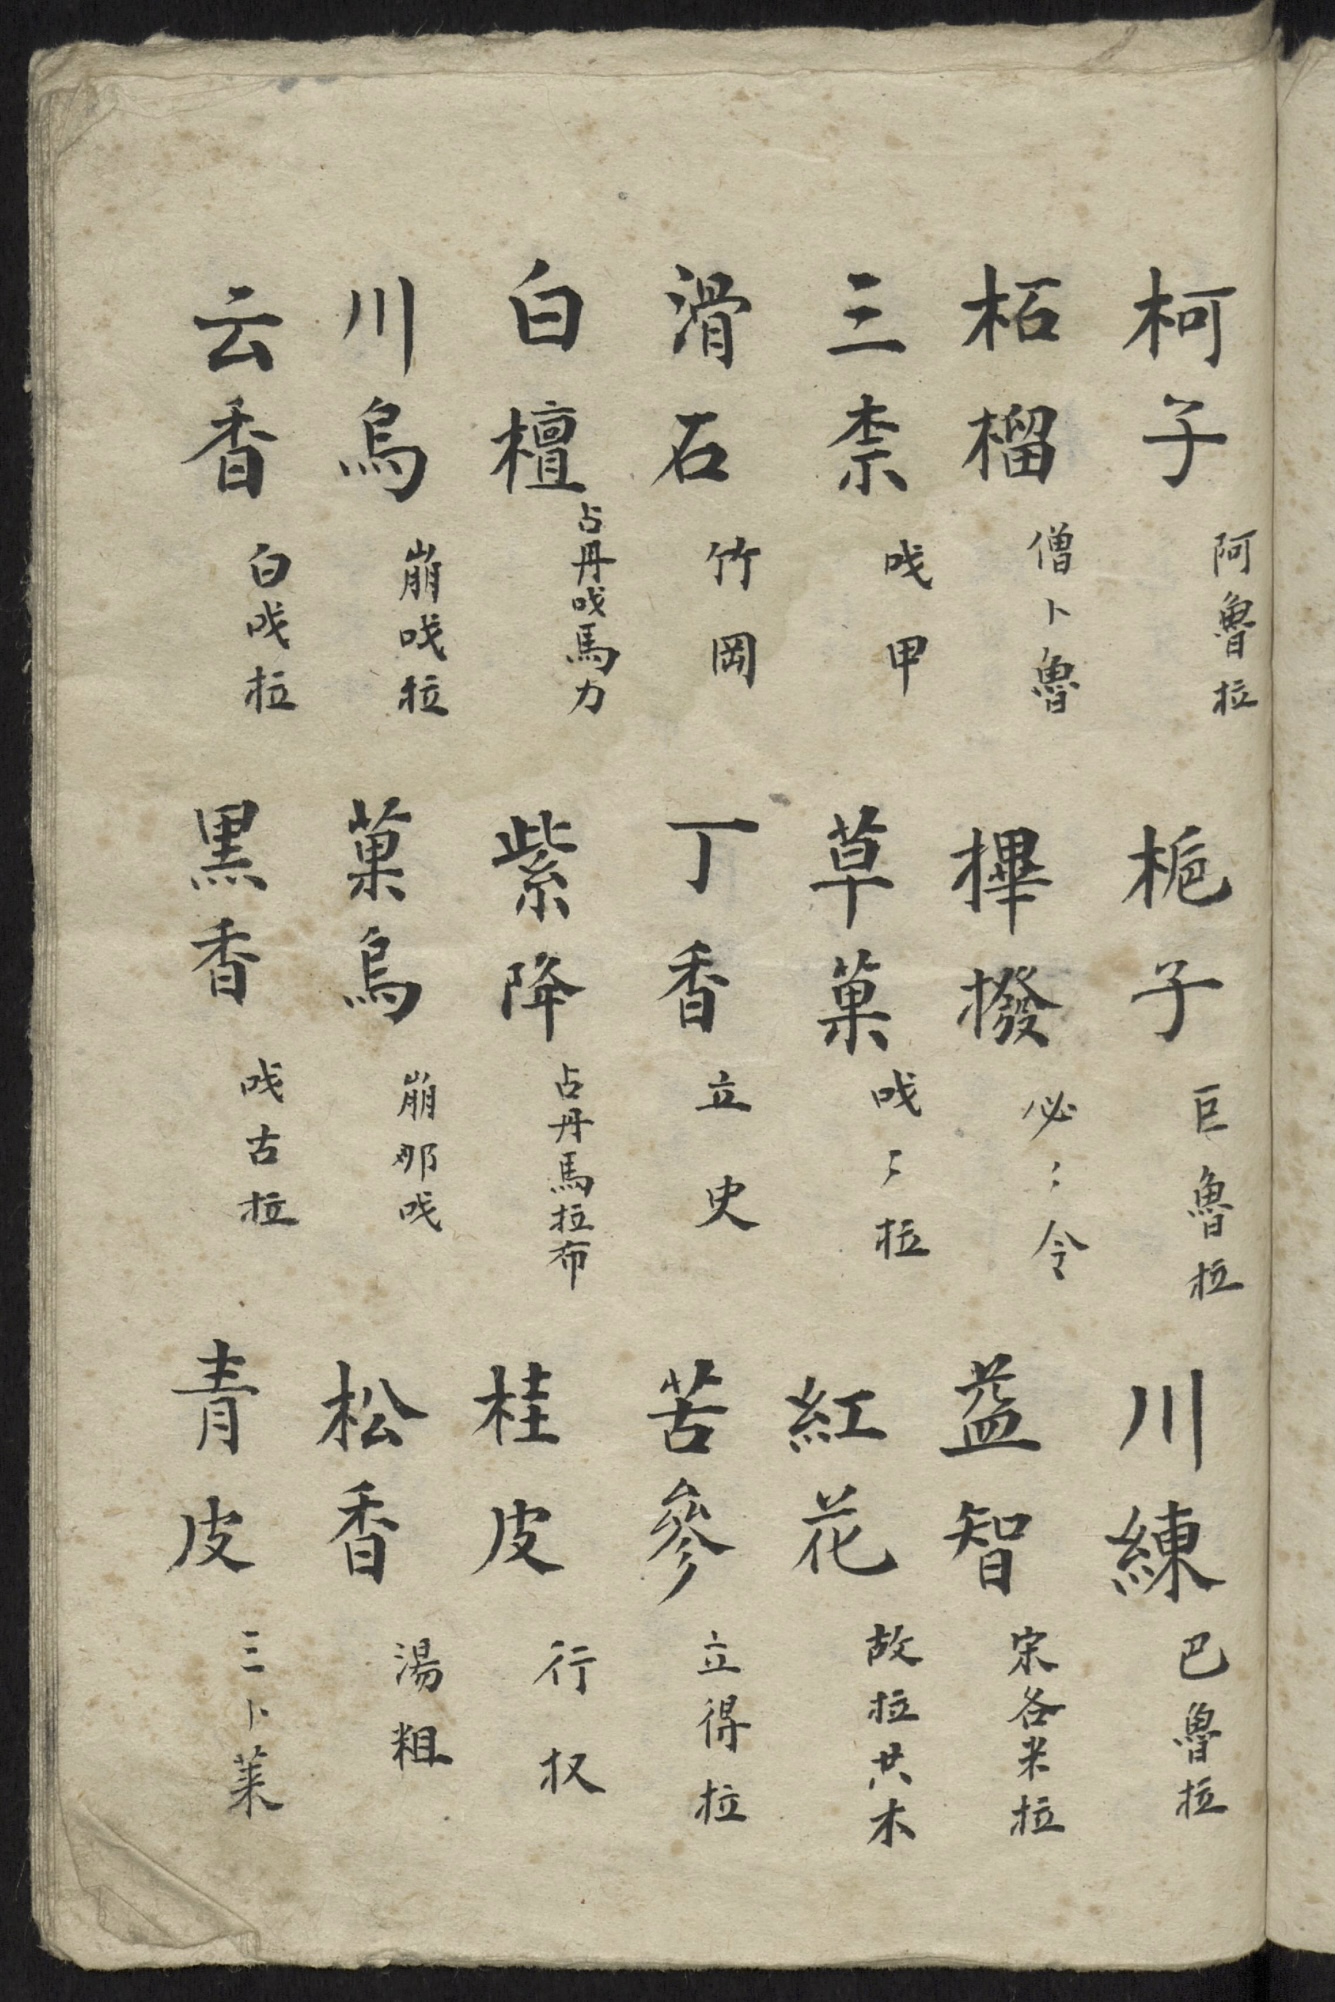 柯子 阿魯拉 梔子 巨魯拉 川練 巴魯拉
柘榴 僧卜魯 樺撥 必〻令 益智 宋各米拉
三柰 㖪甲 草菓 㖪〻拉 紅花 故拉共木
滑石 竹岡 丁香 立史 苦參 立得拉
白檀 占丹㖪馬力 紫降 占丹馬拉布 桂皮 行杈
川烏 崩㖪拉 菓烏 崩那㖪 松香 湯粗
云香 白㖪拉 黒香 㖪古拉 青皮 三卜萊